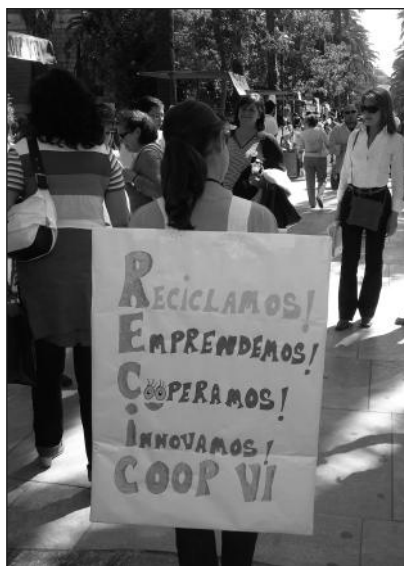 RECICLAMOS!
EMPRENDEMOS!
COOPERAMOS!
iNNOVAMOS!
COOP VI